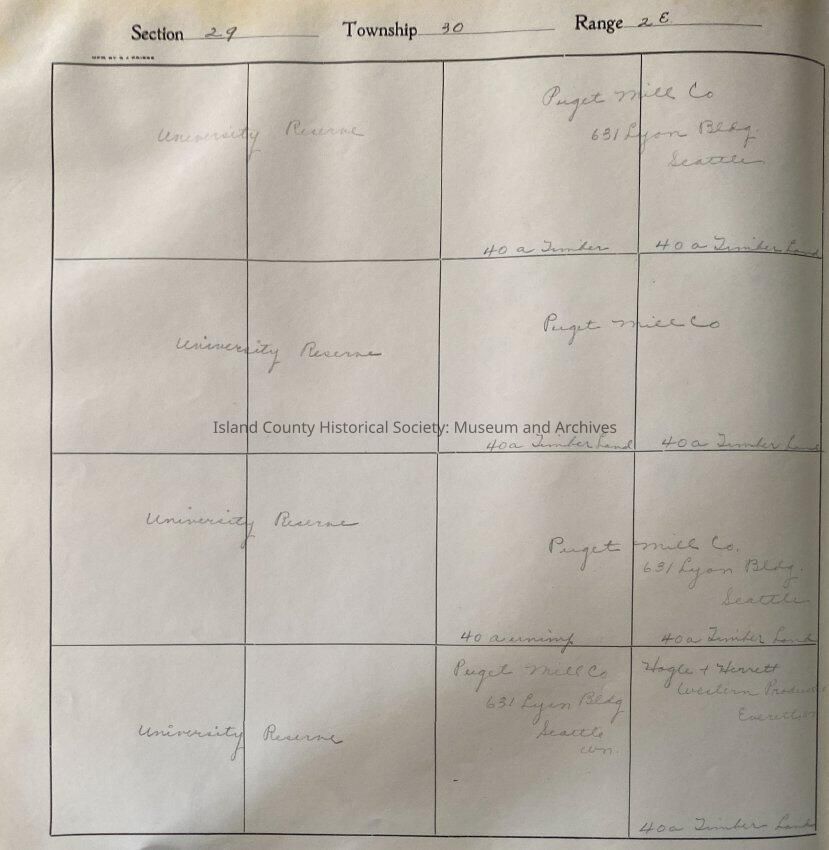 Section 29 Township 30 Range 2 E
University Reserve
Puget Mill Co
631 Lyon Bldg.
Seattle
40 a Timber
40 a Timber Land
University Reserve
Puget Mill Co
40a Timber Land
40a Timber Land
Island County Historical Society: Museum and Archives
University Reserve
Puget Mill Co.
631 Lyon Bldg.
Seattle
40 a unimp
40a Timber Land
University Reserve
Puget Mill Co
631 Lyon Bldg
Seattle
Wn.
Hogle + Herrett
Western Produce
Everett
40a Timber Land